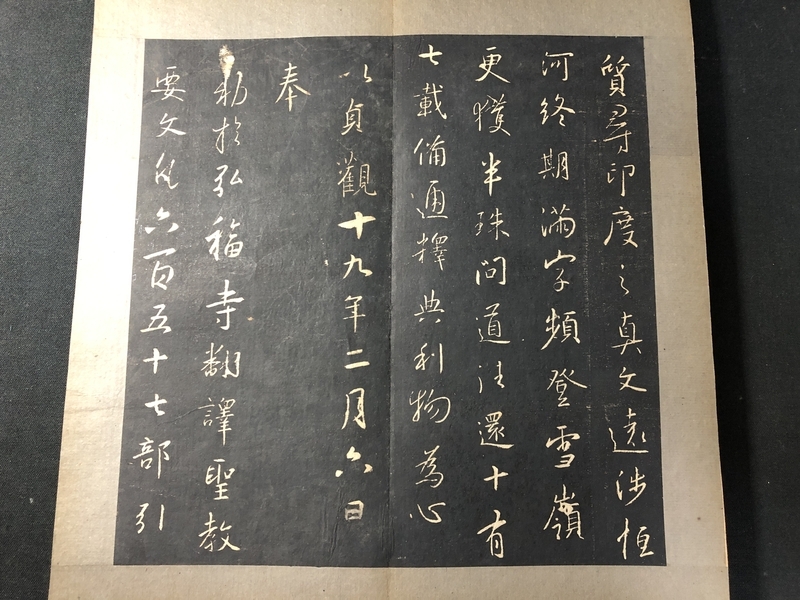 質尋印度之真文遠涉恒
河終期滿字頻登雪嶺
更獲半珠問道法還十有
七載備通釋典利物為心
以貞觀十九年二月六日
奉
勑於弘福寺翻譯聖教
要文凡六百五十七部引